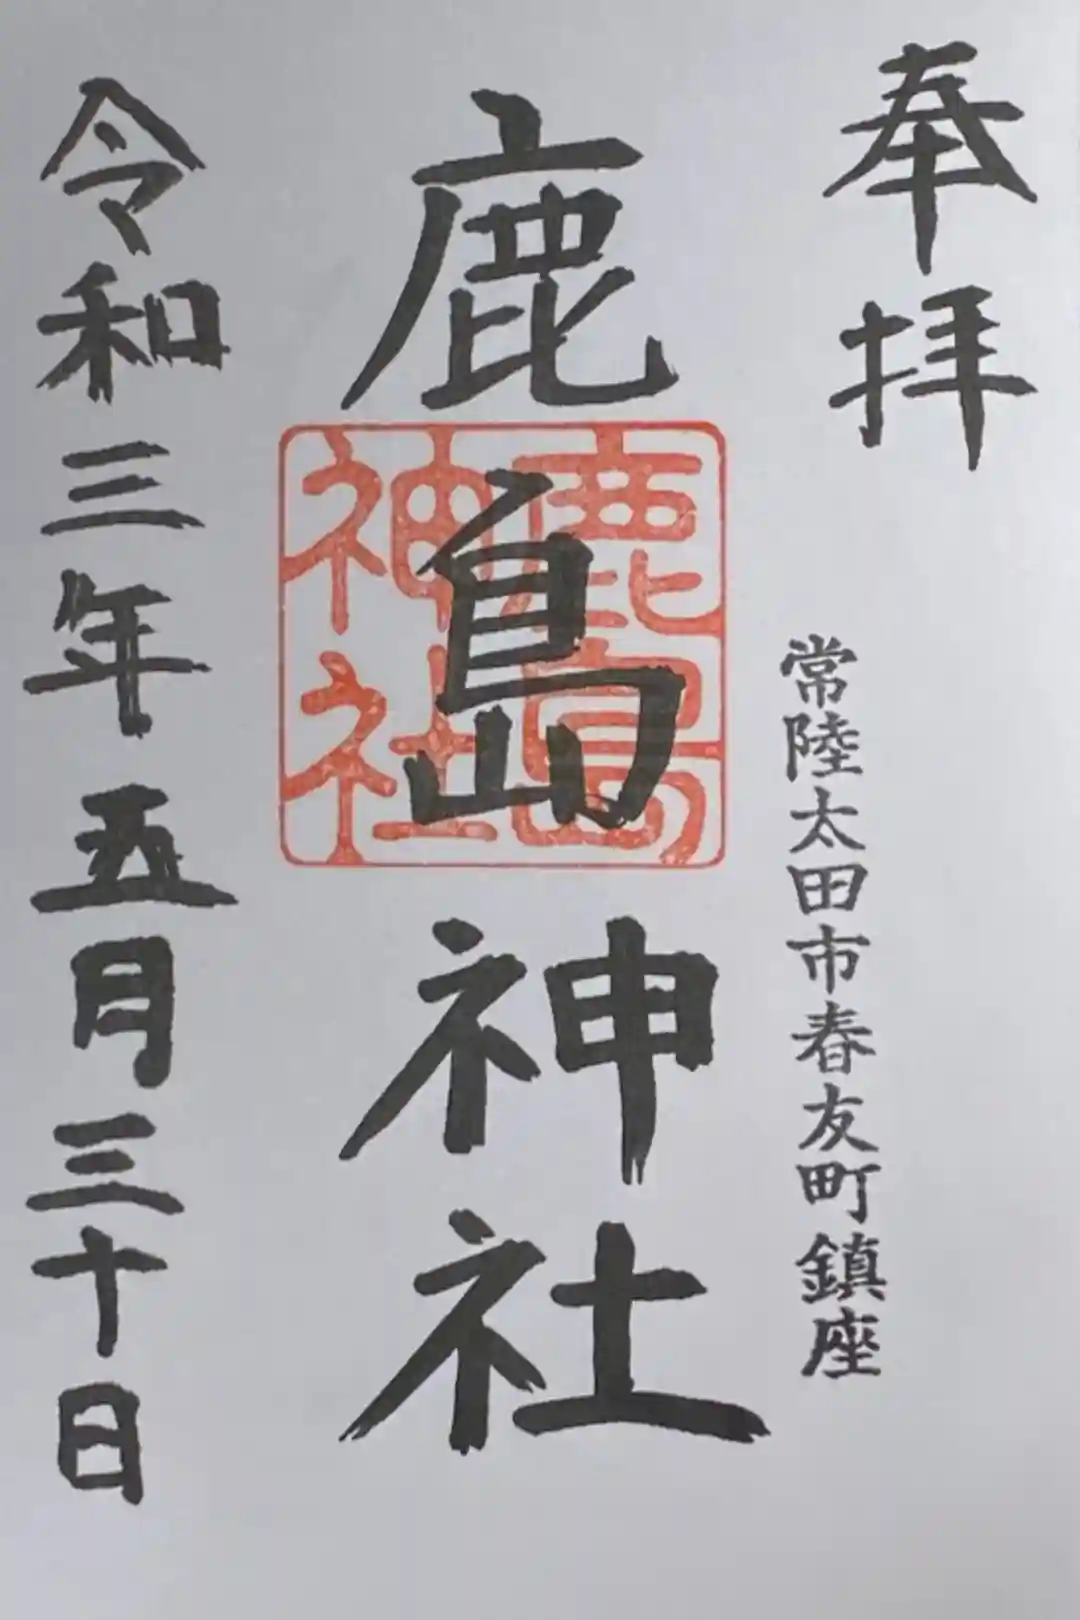 奉拝
常陸太田市春友町鎮座
鹿島神社
鹿島神社
令和三年五月三十日